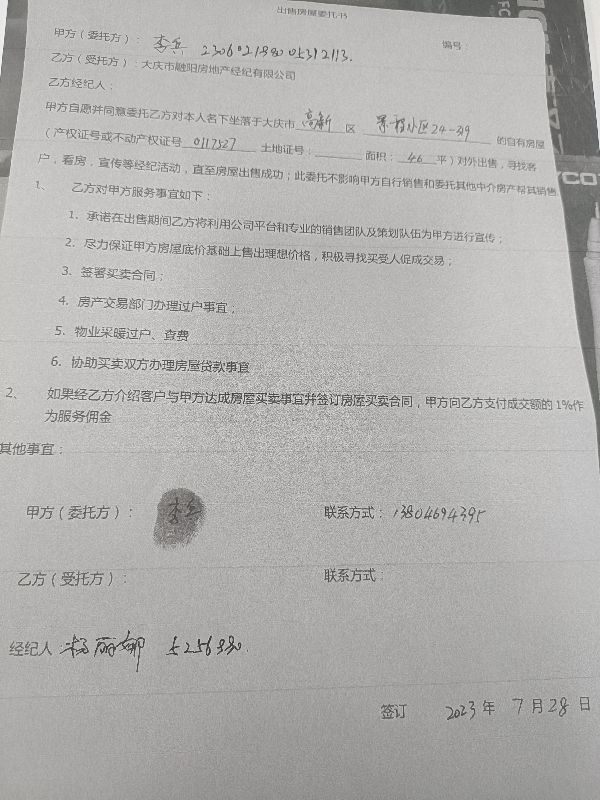 出售房屋委托书
甲方（委托方）：李兵 230602198005312113. 编号：
乙方（受托方）：大庆市融阳房地产经纪有限公司
乙方经纪人：
甲方自愿并同意委托乙方对本人名下坐落于大庆市 高新 区 小区24-39 的自有房屋
（产权证号或不动产权证号 0117527 土地证号： 面积： 46 平）对外出售，寻找客
户，看房，宣传等经纪活动，直至房屋出售成功；此委托不影响甲方自行销售和委托其他中介房产帮其销售.
1、 乙方对甲方服务事宜如下：
1、承诺在出售期间乙方将利用公司平台和专业的销售团队及策划队伍为甲方进行宣传；
2、尽力保证甲方房屋底价基础上售出理想价格，积极寻找买受人促成交易；
3、签署买卖合同；
4、房产交易部门办理过户事宜；
5、物业采暖过户、查费
6、协助买卖双方办理房屋贷款事宜
2、 如果经乙方介绍客户与甲方达成房屋买卖事宜并签订房屋买卖合同，甲方向乙方支付成交额的 1%作
为服务佣金
其他事宜：
甲方（委托方）： 李兵 联系方式：13804694395
乙方（受托方）： 联系方式：
经纪人：杨丽娜 5256330.
签订 2023 年 7 月 28 日